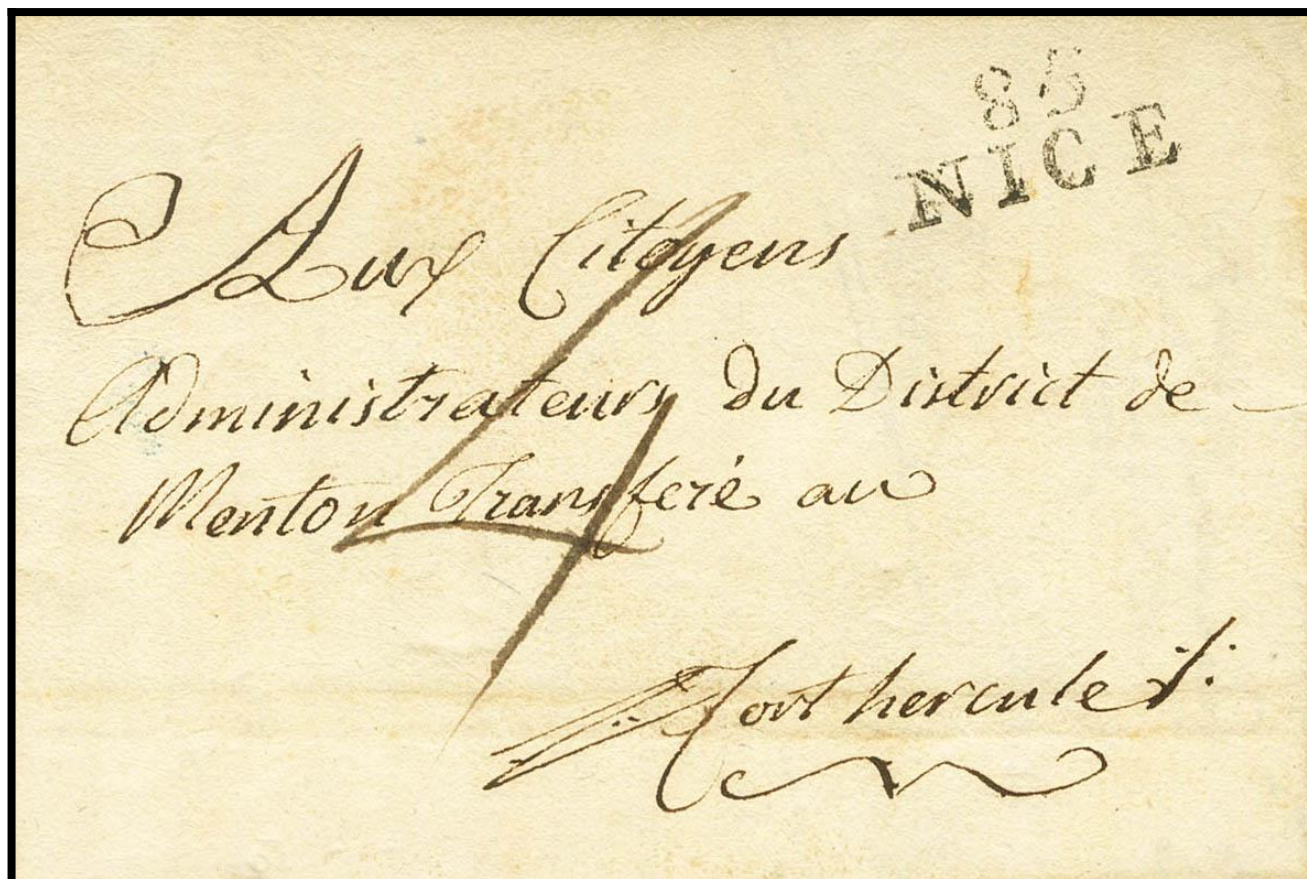 85
NICE
Aux Citoyens
Administrateurs du District de
Menton Transferé au
4
fort hercule